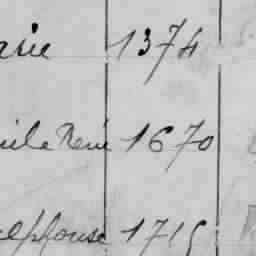 arie 1374
mile René 1670
Alphonse 1715